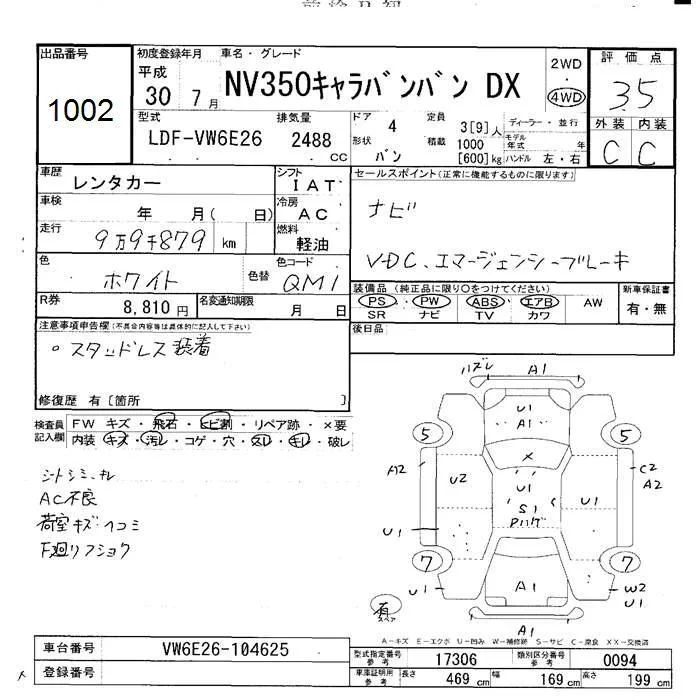 出品番号
1002
初度登録年月
平成
30 7 月
車名・グレード
NV350キャラバンバン DX
2WD
・
4WD
評価点
3.5
外装 内装
C C
型式
LDF-VW6E26
排気量
2488
CC
ドア
4
形状
バン
定員
3[9]人
積載
1000
[600]kg
ディーラー・並行
モデル
年式 年
ハンドル 左・右
車歴
レンタカー
シフト
IAT
車検
年 月( 日)
冷房
AC
走行
9万9千879 km
燃料
軽油
色
ホワイト
色替
色コード
QM1
R券
8,810円
名変通知期限
月 日
セールスポイント(正常に機能するものに限ります)
ナビ
VDC、エマージェンシーブレーキ
装備品(純正品に限り○をつけてください)
PS・PW・ABS・エアB・AW
SR ナビ TV カワ
新車保証書
有・無
後日品
注意事項申告欄(不具合内容等は具体的に記入して下さい)
○スタッドレス装着
修復歴 有[箇所 ]
検査員
記入欄
FW キズ・飛石・ヒビ割・リペア跡・×要
内装・キズ・汚レ・コゲ・穴・スレ・キレ・破レ
シートシミ、ナレ
AC不良
荷室キズ・ヘコミ
下廻リフショク
ハズレ A1
U1
A1
5 5
×
A2 U2 U1 U1 C2
A2
S1
Pハゲ
U1
7 7
U1 A1 W2
U1
有
スペア
A1
A-キズ E-エクボ U-凹み W-補修跡 S-サビ C-腐食 XX-交換済
車台番号
VW6E26-104625
登録番号
型式指定番号
参考
17306
類別区分番号
参考
0094
車庫証明用
参考
長さ
469 cm
幅
169 cm
高さ
199 cm